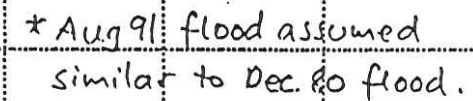 * Aug 91 flood assumed
similar to Dec. 80 flood.